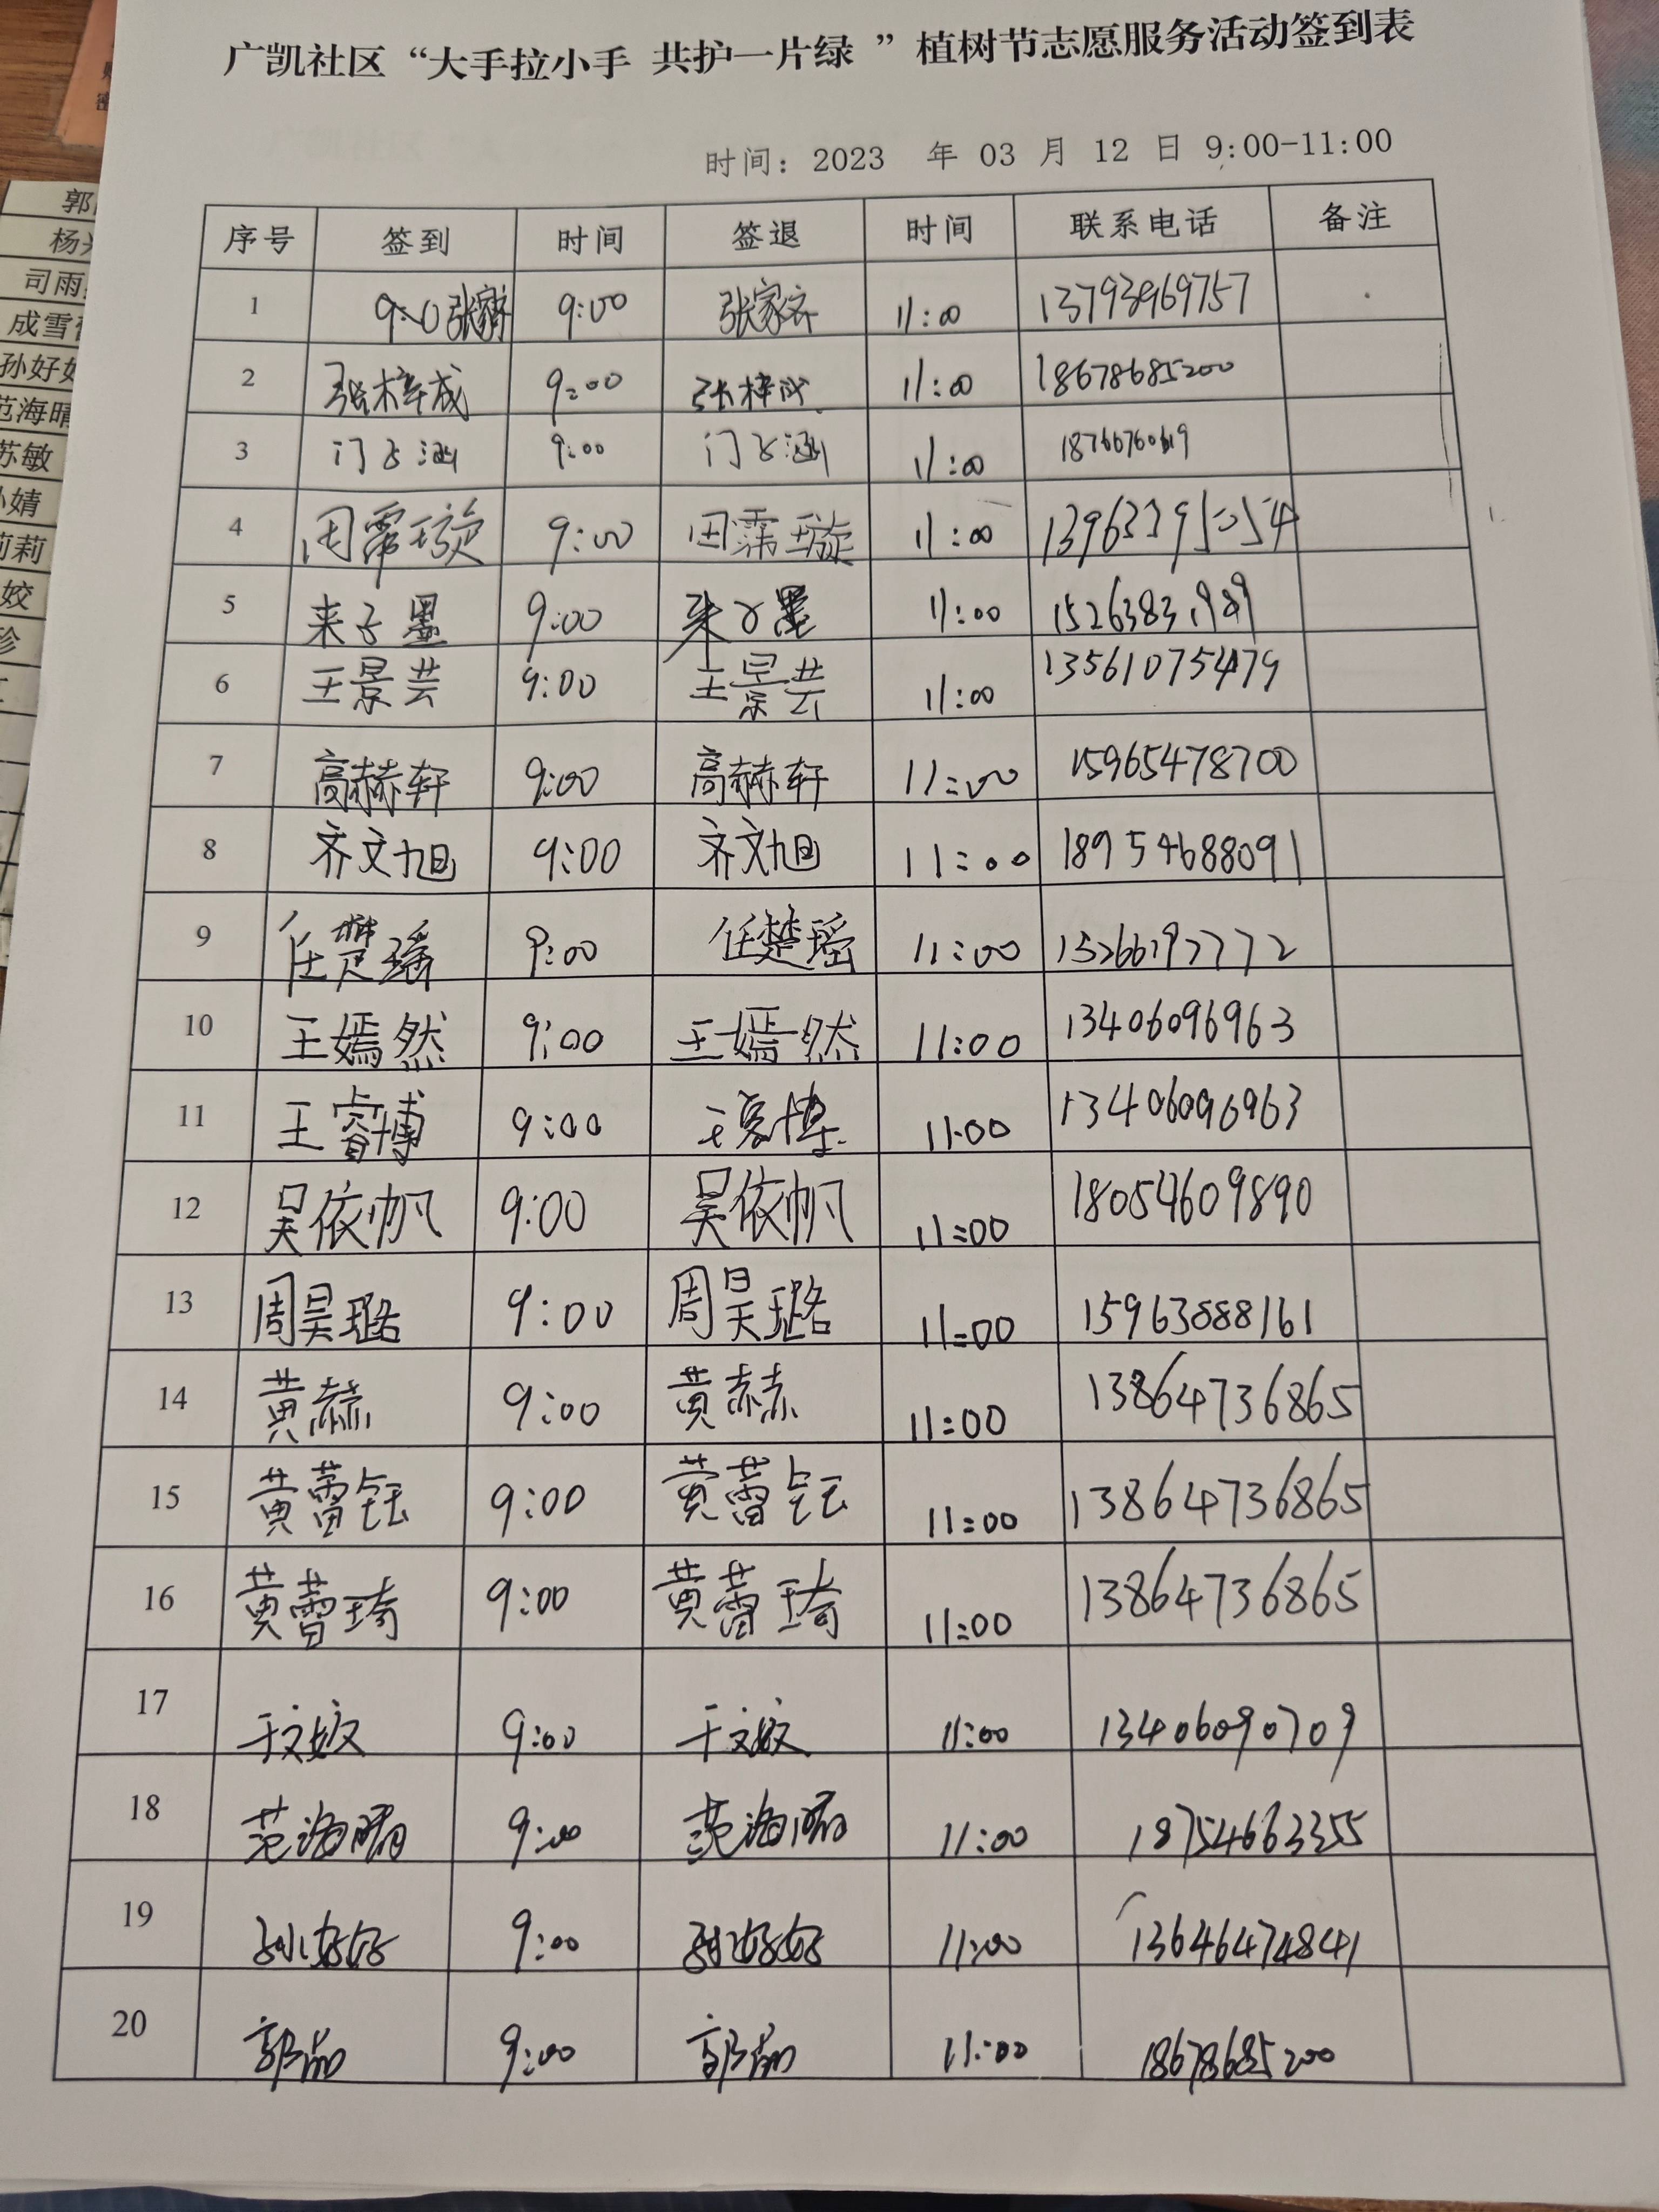 广凯社区“大手拉小手 共护一片绿 ”植树节志愿服务活动签到表
时间：2023 年 03 月 12 日 9:00-11:00
序号 签到 时间 签退 时间 联系电话 备注
1 张家齐 9:00 张家齐 11:00 13793969757
2 张梓成 9:00 张梓成 11:00 18678685200
3 门子涵 9:00 门子涵 11:00
4 田霈璇 9:00 田霈璇 11:00
5 来子墨 9:00 来子墨 11:00
6 王景芸 9:00 王景芸 11:00 13561075479
7 高赫轩 9:00 高赫轩 11:00 15965478700
8 齐文旭 9:00 齐文旭 11:00 18954688091
9 任楚瑶 9:00 任楚瑶 11:00 15266197772
10 王嫣然 9:00 王嫣然 11:00 13406096963
11 王睿博 9:00 11:00 13406096963
12 吴依帆 9:00 吴依帆 11:00 18054609890
13 周昊璐 9:00 周昊璐 11:00 15963888161
14 黄赫 9:00 黄赫 11:00 13864736865
15 黄蕾钰 9:00 黄蕾钰 11:00 13864736865
16 黄蕾琦 9:00 黄蕾琦 11:00 13864736865
17 于文姣 9:00 于文姣 11:00 13406090709
18 范海晴 9:00 范海晴 11:00 18754663355
19 孙好好 9:00 孙好好 11:00 13646474841
20 9:00 11:00 18678685200
郭
杨
司雨
成雪
孙好
范海晴
苏敏
婧
莉
姣